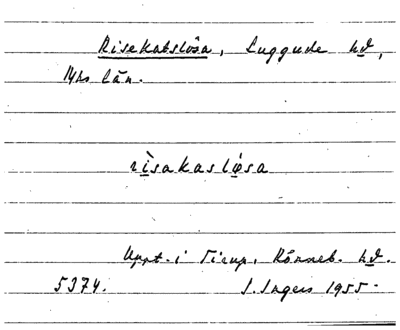 Risekatslösa, Luggude hd,
Mhs län.
rìsakasløsa
Uppt. i Tirup, Rönneb. hd.
5374. I. Ingers 1955.